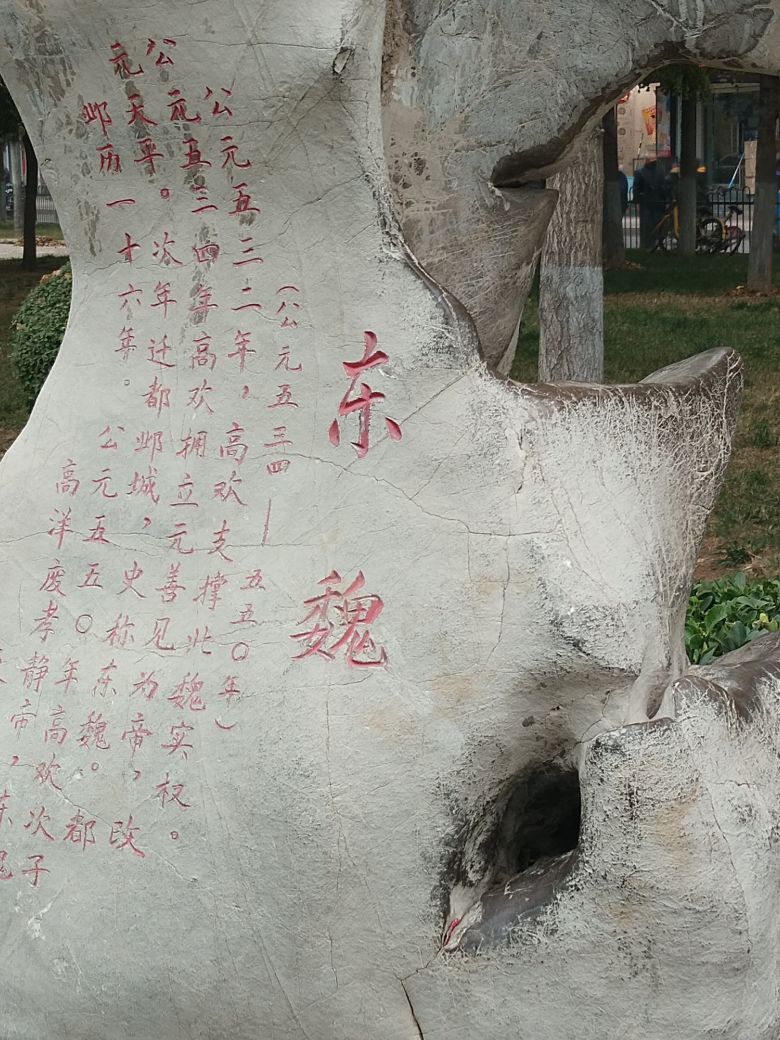 东魏
(公元五三四—五五〇年)
公元五三二年,高欢支撑北魏实权。
公元五三四年高欢拥立元善见为帝,改
元天平。次年迁都邺城,史称东魏。都
邺历一十六年。公元五五〇年高欢次子
高洋废孝静帝,东